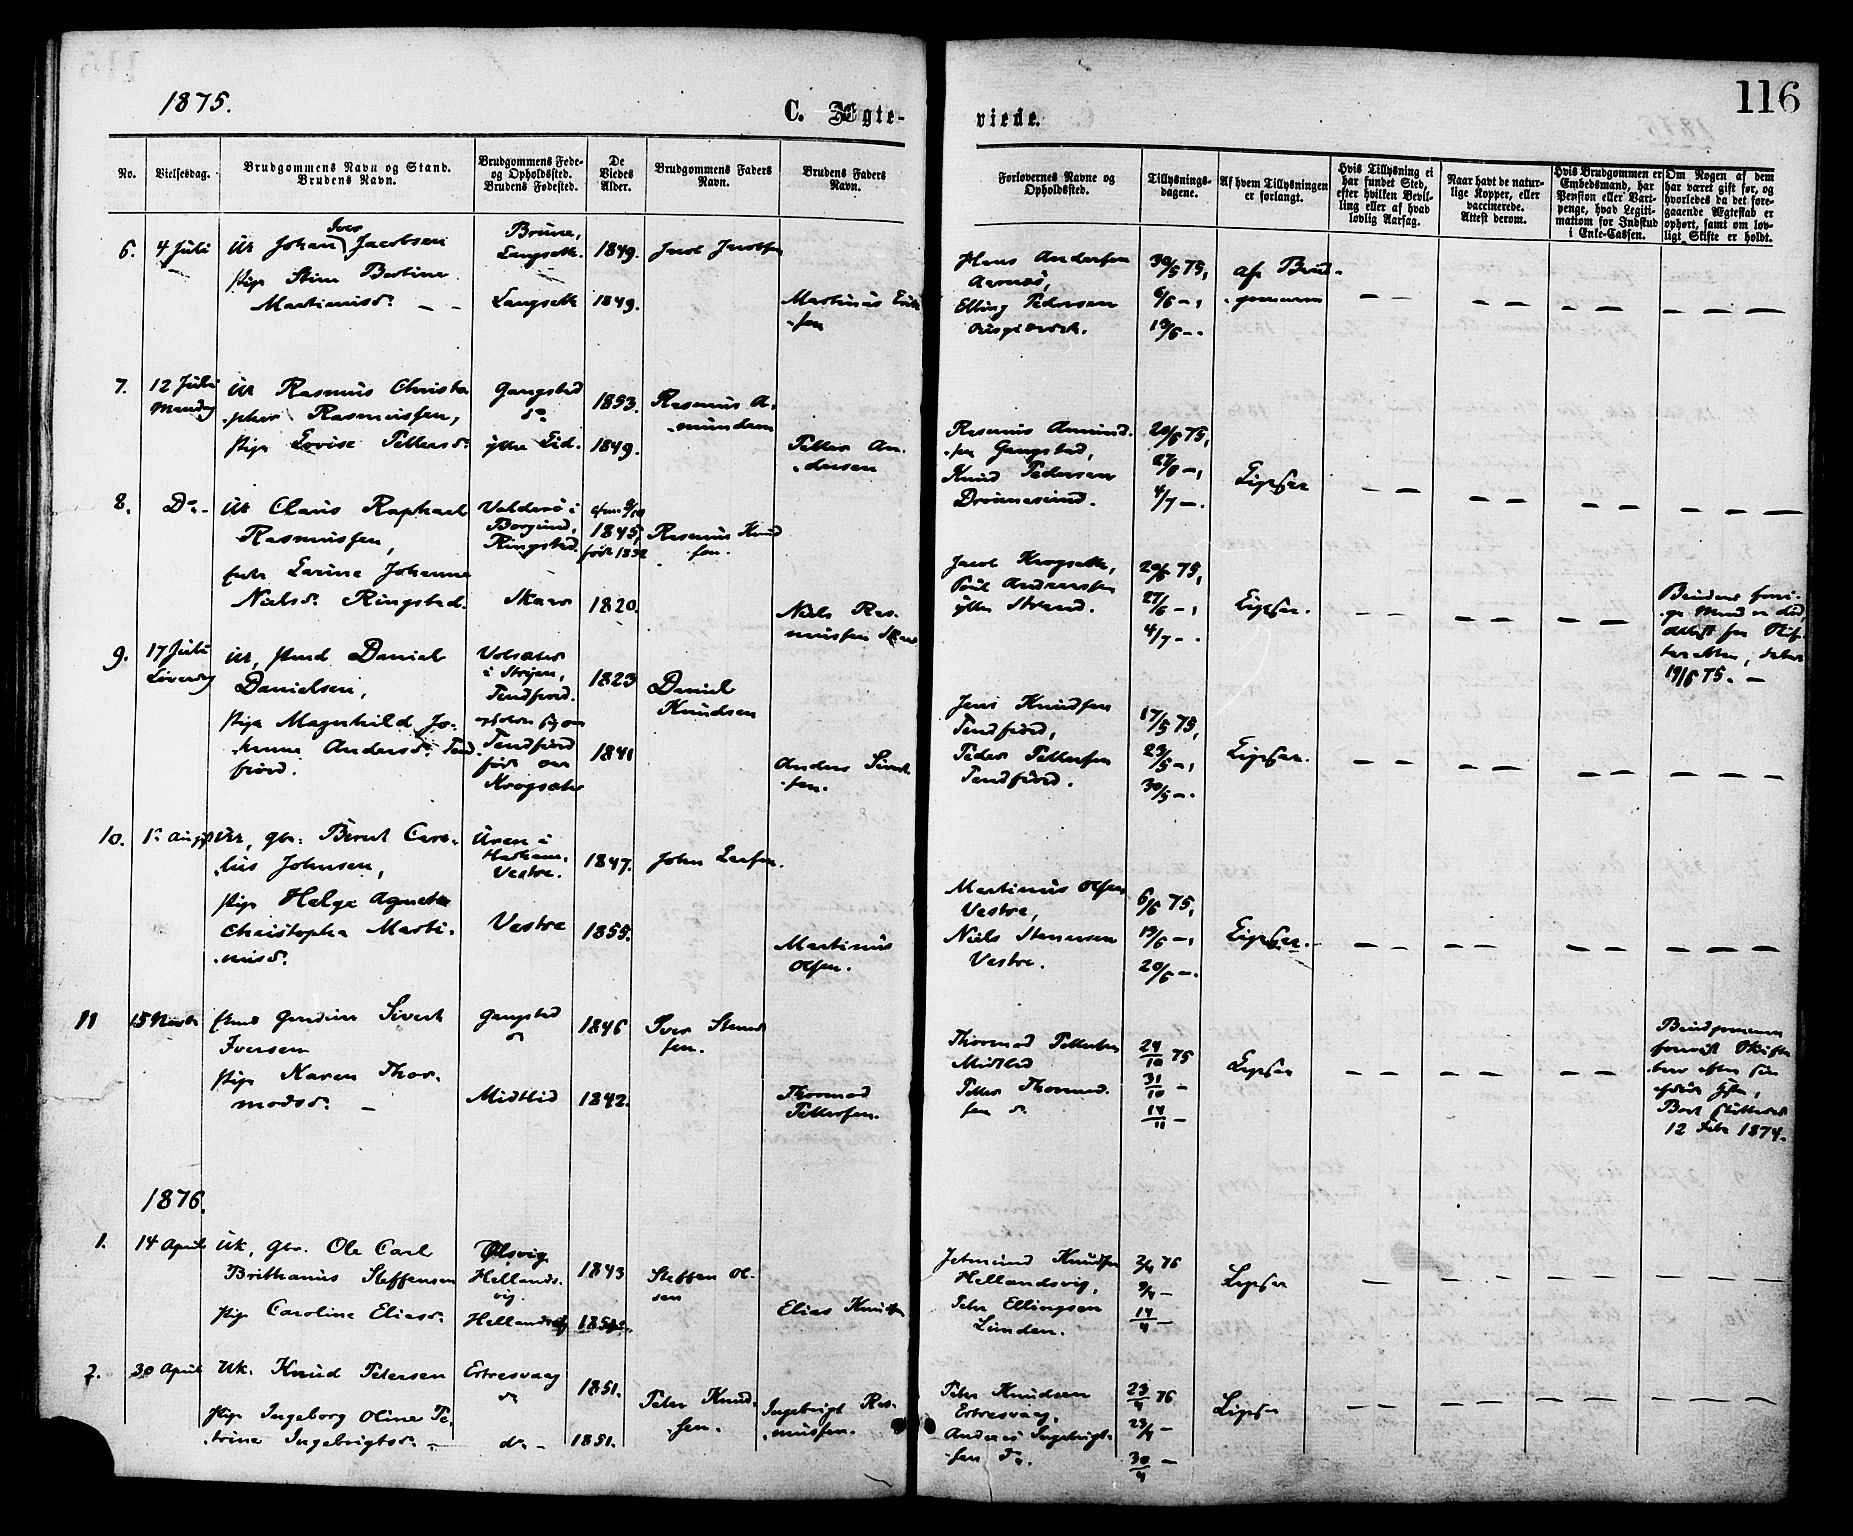 1875.
C. Ægte-
viede.
116
No.
Vielsesdag.
Brudgommens Navn og Stand.
Brudens Navn.
Brudgommens Føde-
og Opholdssted.
Brudens Fødested.
De
Viedes
Alder.
Brudgommens Faders
Navn.
Brudens Faders
Navn.
Forlovernes Navne og
Opholdssted.
Tillysnings-
dagene.
Af hvem Tillysningen
er forlangt.
Hvis Tillysning ei
har fundet Sted,
efter hvilken Bevil-
ling eller af hvad
lovlig Aarsag.
Naar havt de natur-
lige Kopper, eller
vaccinerede.
Attest derom.
Hvis Brudgommen er
Embedsmand, har
Pension eller Vart-
penge, hvad Legiti-
mation for Indskud
i Enke-Cassen.
Om Nogen af dem
har været gift før, og
hvorledes da det fore-
gaaende Ægteskab er
ophørt, samt om lov-
ligt Skifte er holdt.
6.
4 Juli
Uk Johan Iver Jacobsen
Pige Stine Bertine
Martinusd.
Brune,
Langseth
Langseth
1849.
1849.
Jacob Jacobsen
Martinus Erik-
sen
Hans Andersen
Aarnæs,
Elling Pedersen
30/5 75,
6/6 -,
13/6 -.
af Brud-
gommen
7.
12 Juli
Mandag
Uk Rasmus Christo-
pher Rasmussen,
Pige Lovise Pettersd.
Gangstad
do
ytre Eid.
1853.
1849.
Rasmus A-
mundsen
Petter An-
dersen
Rasmus Amund-
sen Gangstad,
Knud Pedersen
Dronnesund.
20/6 75,
27/6 -,
4/7 -.
Ligesaa
8.
Do -
Uk Claus Raphael
Rasmussen,
Enke Larine Johanne
Nielsd. Ringstad.
Valderø i
Borgund,
Ringstad.
Skaar
1845,
1820.
Rasmus Knud-
sen.
Niels Ras-
mussen Skaar
Jacob Krogsæth,
Poul Andreassen
ytre Strand.
20/6 75,
27/6 -,
4/7 -.
Ligesaa.
Brudens forri-
ge Mand er død,
Attest fra Skif-
teretten, dateret
19/6 75. -
9.
17 Juli
Løverdag
Uk, Daniel
Danielsen,
Pige Magnhild Jo-
hanne Andersd. Tend-
fjord.
Volsæter
i Stryen,
Tendfjord.
Tendfjord
født paa
Krogsæter
1823
1841
Daniel
Knudsen
Anders Sivert-
sen.
Jens Knudsen
Tendfjord,
Peder Pettersen
Tendfjord.
17/5 75,
23/5 -,
30/5 -.
Ligesaa.
10.
1 August
Uk, gbr. Bernt Caro-
lius Johnsen,
Pige Helga Agnethe
Christopha Marti-
nusd.
Uren i
Vestre.
Vestre
1847.
1855.
John Larsen.
Martinus
Olsen.
Martinus Olsen
Vestre,
Niels Stenersen
Vestre.
6/6 75,
13/6 -,
20/6 -.
Ligesaa.
11
15 Novbr
Enkemd Gunerius Sivert
Iversen
Pige Karen Thor-
modsd. -
Gangstad
do
Midtlid
1846
1842.
Iver Stened-
sen.
Thormod
Pettersen.
Thormod Pettersen
Midtlid
Petter Thormod-
sen do.
24/10 75
31/10 -
14/11 -
Ligesaa
Brudgommen
forevist Skifte-
brev efter sin
afdøde Hustru,
Boet sluttet
12 Febr 1874.
1876.
1.
14 April
Uk, gbr. Ole Carl
Brithanus Steffensen
Pige Caroline Eliasd.
Ølsvig
Hellands-
vig.
Hellandsvig
1843
Steffen Ol-
sen
Elias Knudsen
Jetmund Knudsen
Hellandsvig,
Peter Ellingsen
Lunden.
2/4 76
9/4 -
14/4 -
Ligesaa
2.
30 April
Uk. Knud Petersen
Pige Ingeborg Oline Pe-
trine Ingebrigtsd. -
Ertresvaag
do
do -
1851.
1851.
Peter Knud-
sen.
Ingebrigt Ras-
mussen.
Peter Knudsen
Ertresvaag,
Anders Ingebrigt-
sen do.
23/4 76
23/4 -
30/4 -
Ligesaa